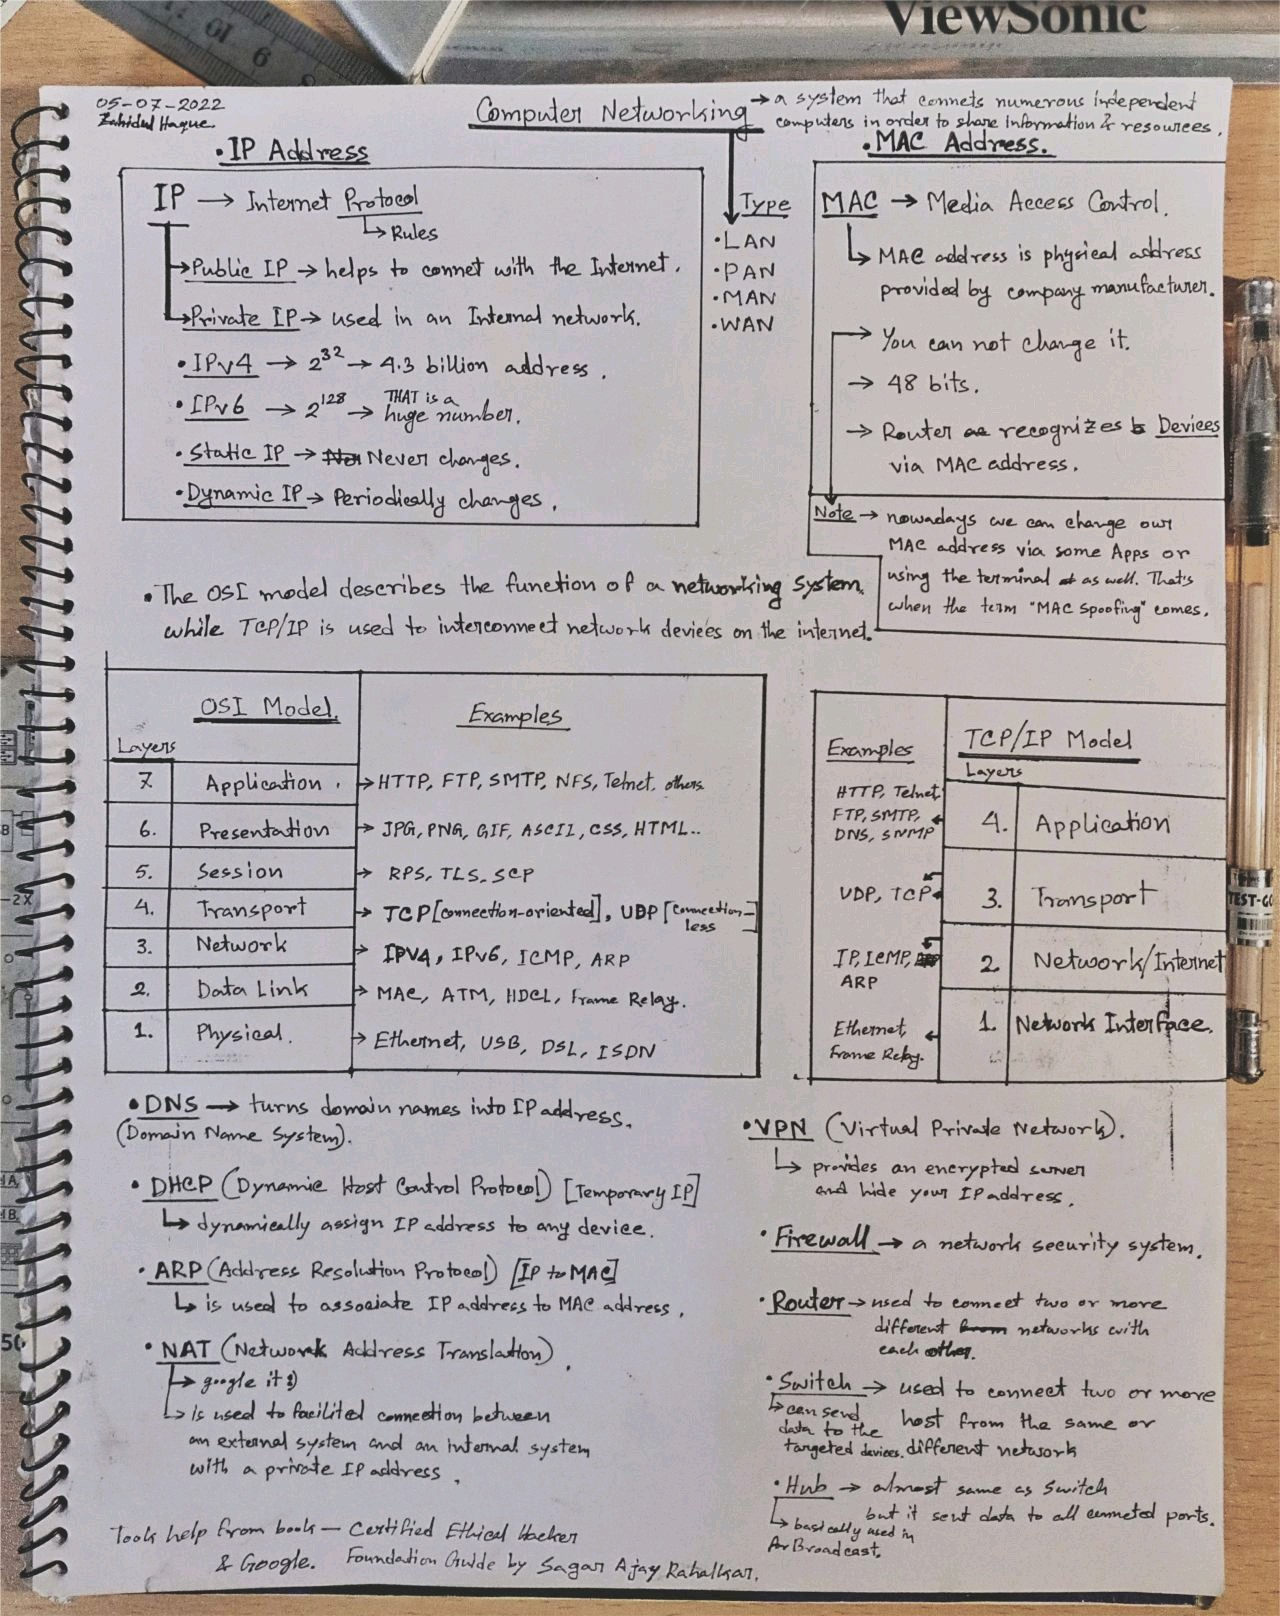 ViewSonic
05-07-2022
Zahidul Haque
Computer Networking → a system that connets numerous independent
computers in order to share information & resources.
• IP Address
IP → Internet Protocol
↳ Rules
→ Public IP → helps to connet with the Internet.
→ Private IP → used in an Internal network.
• IPv4 → 2^32 → 4.3 billion address.
• IPv6 → 2^128 → THAT is a
huge number.
• Static IP → Never changes.
• Dynamic IP → Periodically changes.
Type
• LAN
• PAN
• MAN
• WAN
• MAC Address.
MAC → Media Access Control.
↳ MAC address is physical address
provided by company manufacturer.
→ You can not change it.
→ 48 bits.
→ Router recognizes Devices
via MAC address.
Note → nowadays we can change our
MAC address via some Apps or
using the terminal as well. That's
when the term "MAC spoofing" comes.
• The OSI model describes the function of a networking system.
while TCP/IP is used to interconnect network devices on the internet.
OSI Model. Examples
Layers
7 Application. → HTTP, FTP, SMTP, NFS, Telnet, others.
6. Presentation → JPG, PNG, GIF, ASCII, CSS, HTML..
5. Session → RPS, TLS, SCP
4. Transport → TCP [connection-oriented], UDP [connection-
less]
3. Network → IPV4, IPv6, ICMP, ARP
2. Data Link → MAC, ATM, HDCL, Frame Relay.
1. Physical. → Ethernet, USB, DSL, ISDN
Examples TCP/IP Model
Layers
HTTP, Telnet
FTP, SMTP,
DNS, SNMP
4. Application
UDP, TCP
3. Transport
IP, ICMP,
ARP
2. Network/Internet
Ethernet,
Frame Relay.
1. Network Interface.
• DNS → turns domain names into IP address.
(Domain Name System).
• DHCP (Dynamic Host Control Protocol) [Temporary IP]
↳ dynamically assign IP address to any device.
• ARP (Address Resolution Protocol) [IP to MAC]
↳ is used to assoiate IP address to MAC address.
• NAT (Network Address Translation).
→ google it :)
↳ is used to facilited connection between
an external system and an internal system
with a private IP address.
• VPN (Virtual Private Network).
↳ provides an encrypted server
and hide your IP address.
• Firewall → a network security system.
• Router → used to connect two or more
different networks with
each other.
• Switch → used to connect two or more
host from the same or
different network
↳ can send
data to the
targeted devices.
• Hub → almost same as Switch
but it sent data to all conneted ports.
↳ basically used in
for Broadcast.
Took help from book — Certified Ethical Hacker
& Google. Foundation Guide by Sagar Ajay Rahalkar.